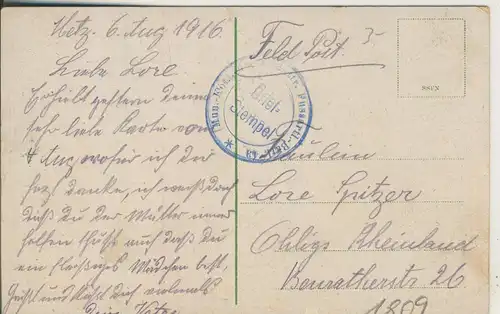 Metz. 6. Aug 1916.
Liebe Lore.
Erhielt gestern deine
sehr liebe Karte vom
4 Aug, wofür ich dir
herz danke, ich weiß doch
daß du der Mutter
helfen thust auch daß du
ein fleißiges Mädchen bist,
Grüßt und Küßt Dich vielmals
Dein Vater
Feld Post.
Brief-
Stempel
Fräulein
Lore Spitzer
Ohligs Rheinland
Benratherstr 26
1809